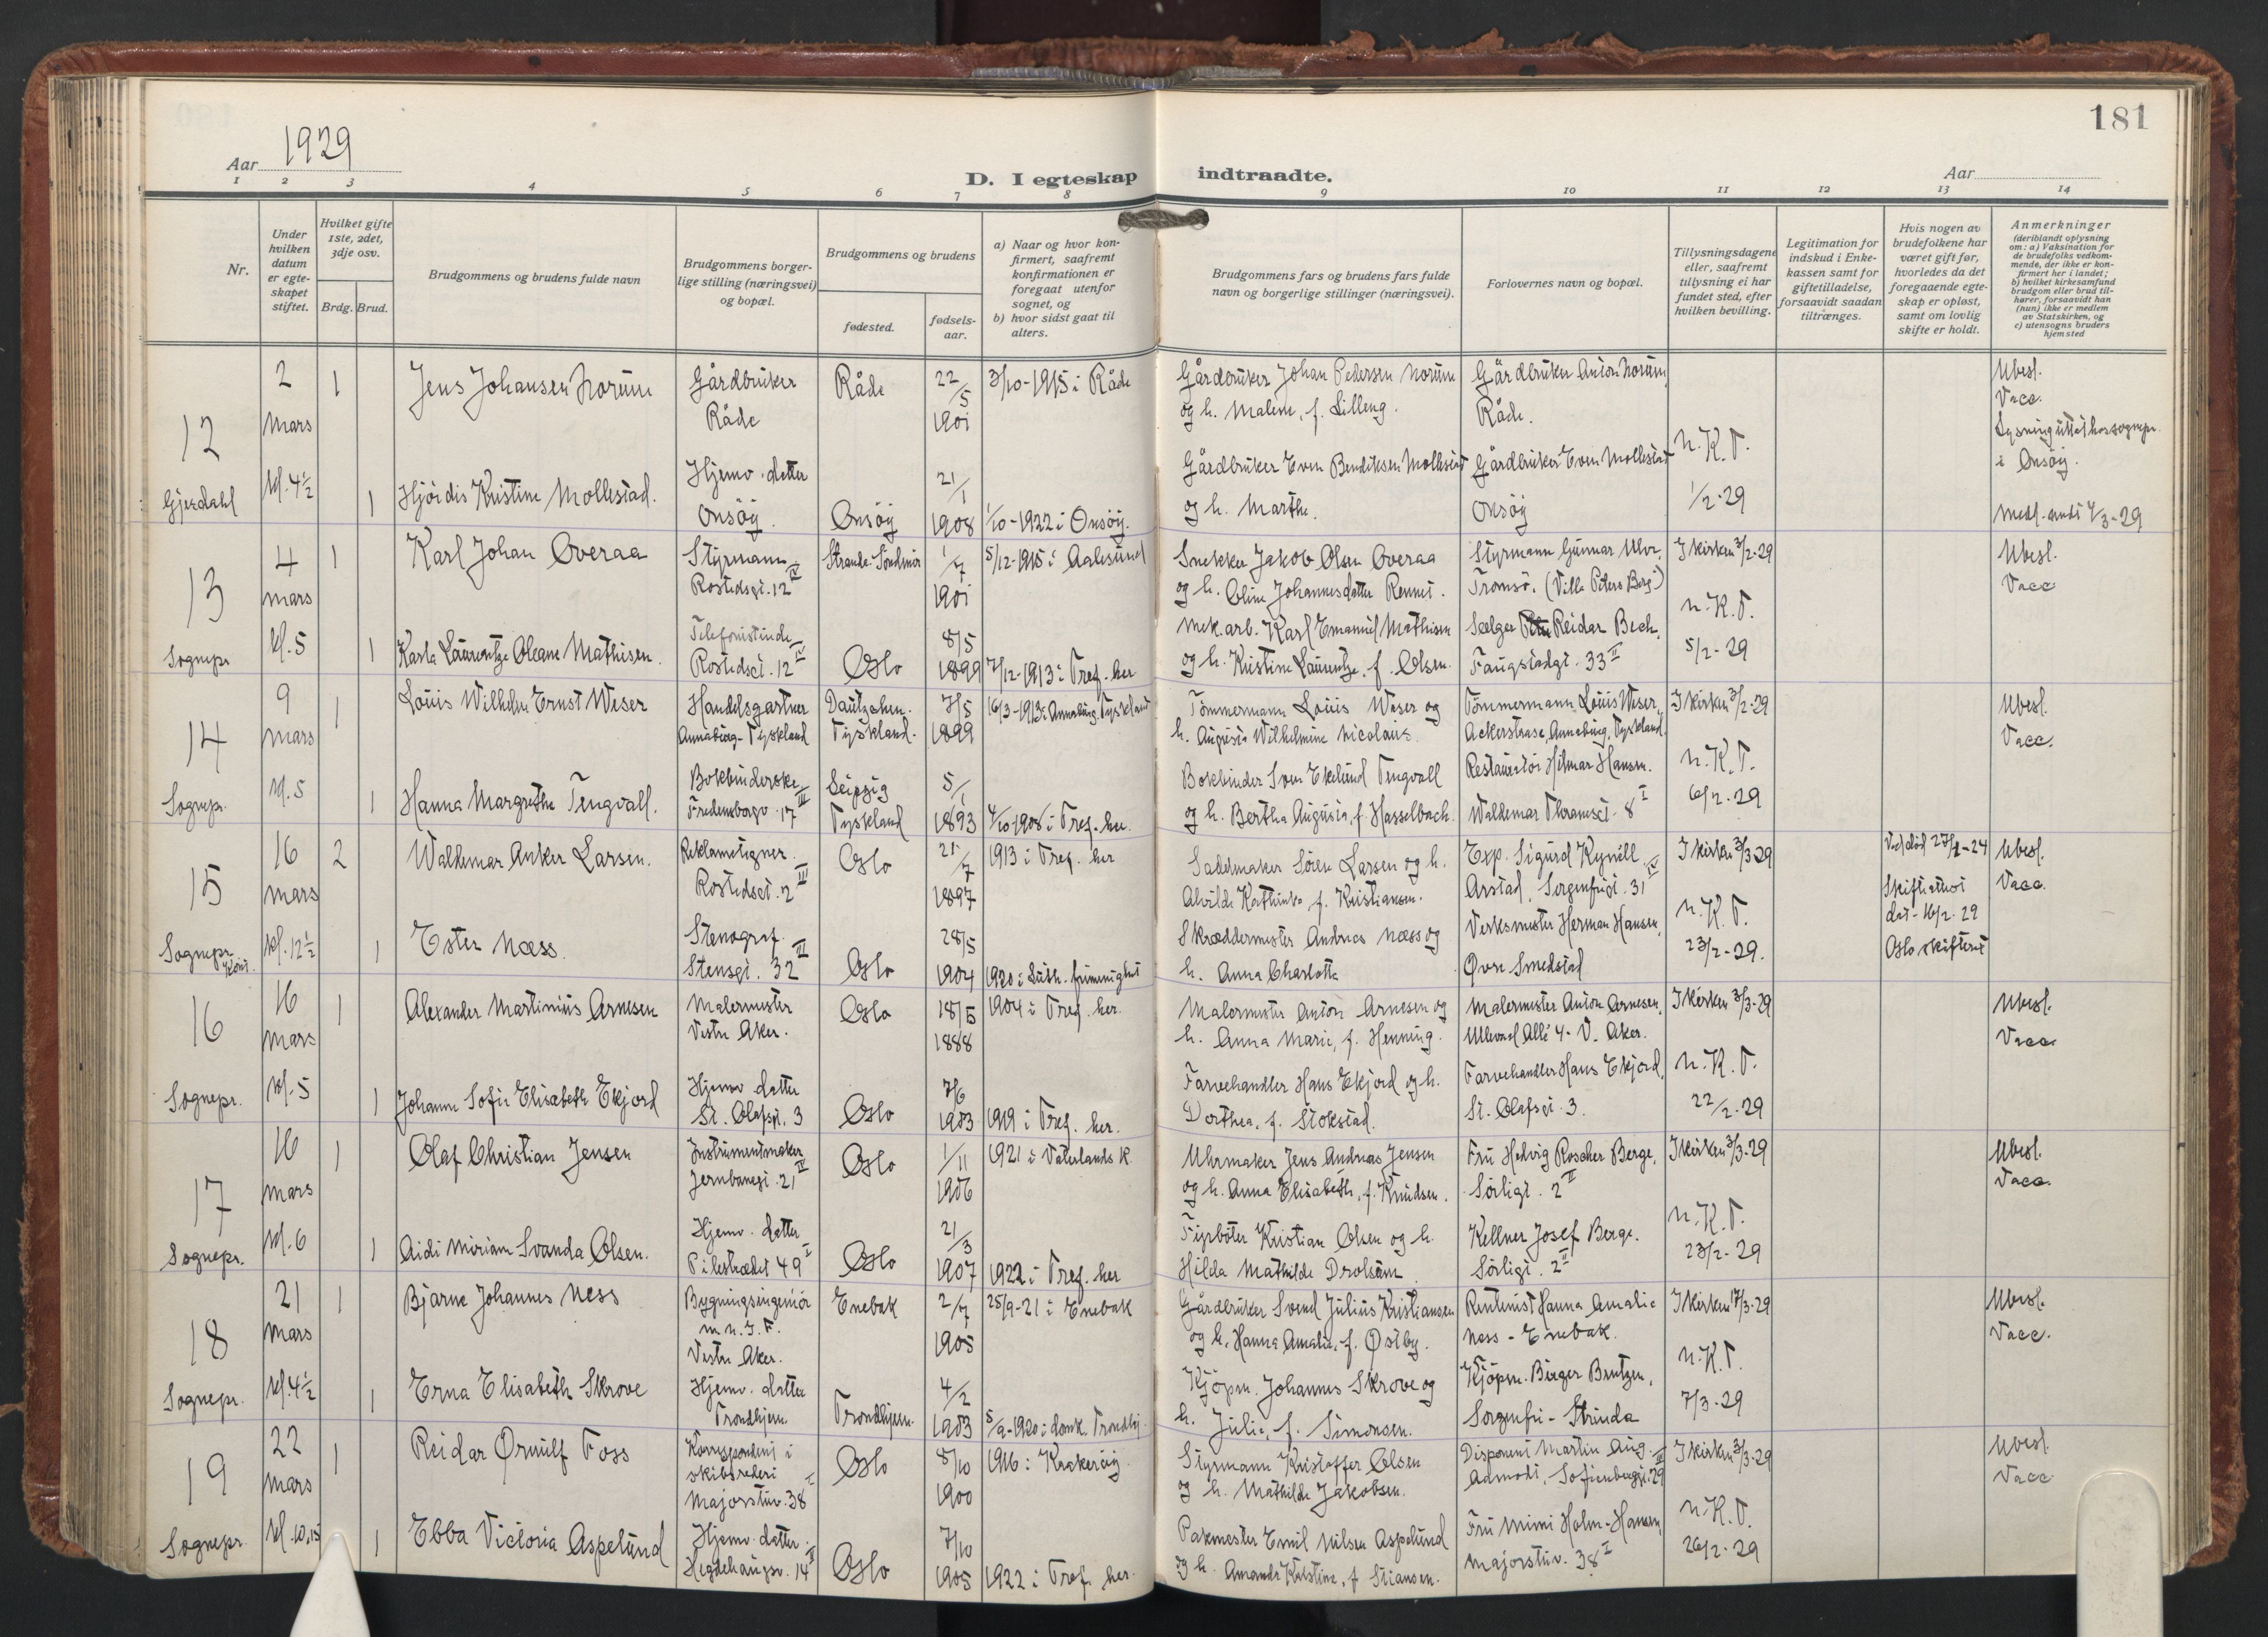 181
Aar 1929
D. I egteskap indtraadte.
Aar
1 2 3 4 5 6 7 8 9 10 11 12 13 14
Nr.
Under hvilken datum er egteskapet stiftet.
Hvilket gifte 1ste, 2det, 3dje osv.
Brdg. Brud.
Brudgommens og brudens fulde navn
Brudgommens borgerlige stilling (næringsvei) og bopæl.
Brudgommens og brudens
fødested.
fødsels-aar.
a) Naar og hvor konfirmert, saafremt konfirmationen er foregaat utenfor sognet, og
b) hvor sidst gaat til alters.
Brudgommens fars og brudens fars fulde navn og borgerlige stillinger (næringsvei).
Forlovernes navn og bopæl.
Tillysningsdagene eller, saafremt tillysning ei har fundet sted, efter hvilken bevilling.
Legitimation for indskud i Enkekassen samt for giftetilladelse, forsaavidt saadan tiltrænges.
Hvis nogen av brudefolkene har været gift før, hvorledes da det foregaaende egteskap er opløst, samt om lovlig skifte er holdt.
Anmerkninger
(deriblandt oplysning om: a) Vaksination for de brudefolks vedkommende, der ikke er konfirmert her i landet; b) hvilket kirkesamfund brudgom eller brud tilhører, forsaavidt han (hun) ikke er medlem av Statskirken, og c) utensogns bruders hjemsted
12 2 mars 1 Jens Johansen Norum Gårdbruker Råde Råde 22/5 1901 3/10-1915 i Råde Gårdbruker Johan Pedersen Norum og h. Malene, f. Lilleng. Gårdbruker Anton Norum, Råde. Ubesl. Vacc.
Gjerdahl kl. 4½ 1 Hjördis Kristine Mollestad. Hjemv. datter Onsöy. Onsöy 21/1 1908 1/10-1922 i Onsöy. Gårdbruker Even Bendiksen Mollestad og h. Marthe. Gårdbruker Even Mollestad Onsöy N.K.T. 1/2-29 i Onsöy.
13 4 mars 1 Karl Johan Overaa Styrmann Rostedsgt. 12 IV Strande-Söndmör 1/7 1901 5/12-1915 i Aalesund Snekker Jakob Olsen Overaa og h. Oline Johannesdatter Styrmann Gunnar Tromsö. I kirken 3/2-29 Ubesl. Vacc
Sognepr kl. 5 1 Karla Laurentze Oleane Mathisen. Telefonistinde Rostedsgt. 12 IV Oslo 8/5 1899 7/12-1913 i Tref. her Mek. arb. Karl Emanuel Mathisen og h. Kristine Laurentze, f. Olsen. Selger Reidar Bech, 33 II N.K.T. 5/2-29
14 9 mars 1 Louis Wilhelm Ernst Weser Handelsgartner Annaburg-Tyskland Dautzchen. Tyskland. 7/5 1899 16/3-1913 i Annaburg. Tyskland Tömmermann Louis Weser og h. Augusta Wilhelmine Nicolaus. Tömmermann Louis Weser, Ackerstrase, Annaburg, Tyskland. I kirken 3/2-29 Ubesl. Vacc.
Sognepr. kl. 5 1 Hanna Margrethe Tengvall. Bokbinderske Fredensborgv. 17 III Leipzig Tyskland 5/1 1893 4/10-1908 i Tref. her. Bokbinder Sven Ekelund Tengvall og h. Bertha Augusta, f. Hasselbach. Restauratör Hilmar Hansen. Waldemar Thranesgt. 8 I N.K.T. 6/2-29
15 16 mars 2 Waldemar Anker Larsen. Reklametegner. Rostedsgt. 2 III Oslo 21/7 1897 1913 i Tref. her Sadelmaker Sören Larsen og h. Alvilde Kathinka f. Kristiansen. Exp. Sigurd Arstad, Sorgenfrigt. 31 IV I kirken 3/3-29 Ubesl. Vacc.
Sognepr. kl. 12½ 1 Ester Næss. Stenograf. Stensgt. 32 II Oslo 28/5 1904 1920 i Luth. frimenighet Skræddermester Andreas Næss og h. Anna Charlotte Verksmester Herman Hansen, Øvre Smedstad N.K.T. 23/2-29. Oslo skifterett
16 16 mars 1 Alexander Martinius Arnesen Malermester Vestre Aker. Oslo 18/5 1888 1904 i Tref. her. Malermester Anton Arnesen og h. Anna Marie, f. Henning. Malermester Anton Arnesen, Ullevaal Allé 4 - V. Aker. I kirken 3/3-29 Ubesl. Vacc.
Sognepr. kl. 5 1 Johanne Sofie Elisabeth Ekjord Hjemv. datter St. Olafsgt. 3 Oslo 7/6 1903 1919 i Tref. her. Farvehandler Hans Ekjord og h. Dorthea, f. Stokstad. Farvehandler Hans Ekjord, St. Olafsgt. 3. N.K.T. 22/2-29
17 16 mars 1 Olaf Christian Jensen Instrumentmaker Jernbanegt. 21 IV Oslo 1/11 1906 1921 i Vaterlands K. Uhrmaker Jens Andreas Jensen og h. Anna Elisabeth, f. Knudsen. Fru Hedvig Roscher Berge, Sörligt. 2 II I kirken 3/3-29 Ubesl. Vacc.
Sognepr. kl. 6 1 Aidi Miriam Svanda Olsen. Hjemv. datter Pilestrædet 49 I Oslo 21/3 1907 1922 i Tref. her Fyrböter Kristian Olsen og h. Hilda Mathilde Drolsum Kellner Josef Berge. Sörligt. 2 II N.K.T. 23/2-29
18 21 mars 1 Bjarne Johannes Ness Bygningsingeniör m.N.I.F. Vestre Aker. Enebak 2/7 1905 25/9-21 i Enebak Gårdbruker Svend Julius Kristiansen og h. Hanna Amalie, f. Østby. Rentenist Hanna Amalie Ness - Enebak. I kirken 17/3-29 Ubesl. Vacc.
Sognepr. kl. 4½ 1 Erna Elisabeth Skrove Hjemv. datter Trondhjem. Trondhjem. 4/2 1903 Kjöpm. Johannes Skrove og h. Julie, f. Simonsen. Kjöpm. Birger Berntzen, Sorgenfri - Strinda N.K.T. 7/3-29
19 22 mars 1 Reidar Ørnulf Foss Korrespondent i skibsrederi Majorstuv. 38 I Oslo 8/10 1900 1916 i Krakeröy. Styrmann Kristoffer Olsen og h. Mathilde Jakobsen. Disponent Martin Aug. Aamodt, Sofienberggt. 29 I kirken 3/3-29 Ubesl. Vacc
Sognepr. kl. 10,15 1 Ebba Victoria Aspelund Hjemv. datter Hegdehaugsv. 14 II Oslo 7/10 1905 1922 i Tref. her. Pakmester Emil Nilsen Aspelund og h. Amanda Kristine, f. Stiansen. Fru Mimi Holm-Hansen, Majorstuv. 38 I N.K.T. 26/2-29